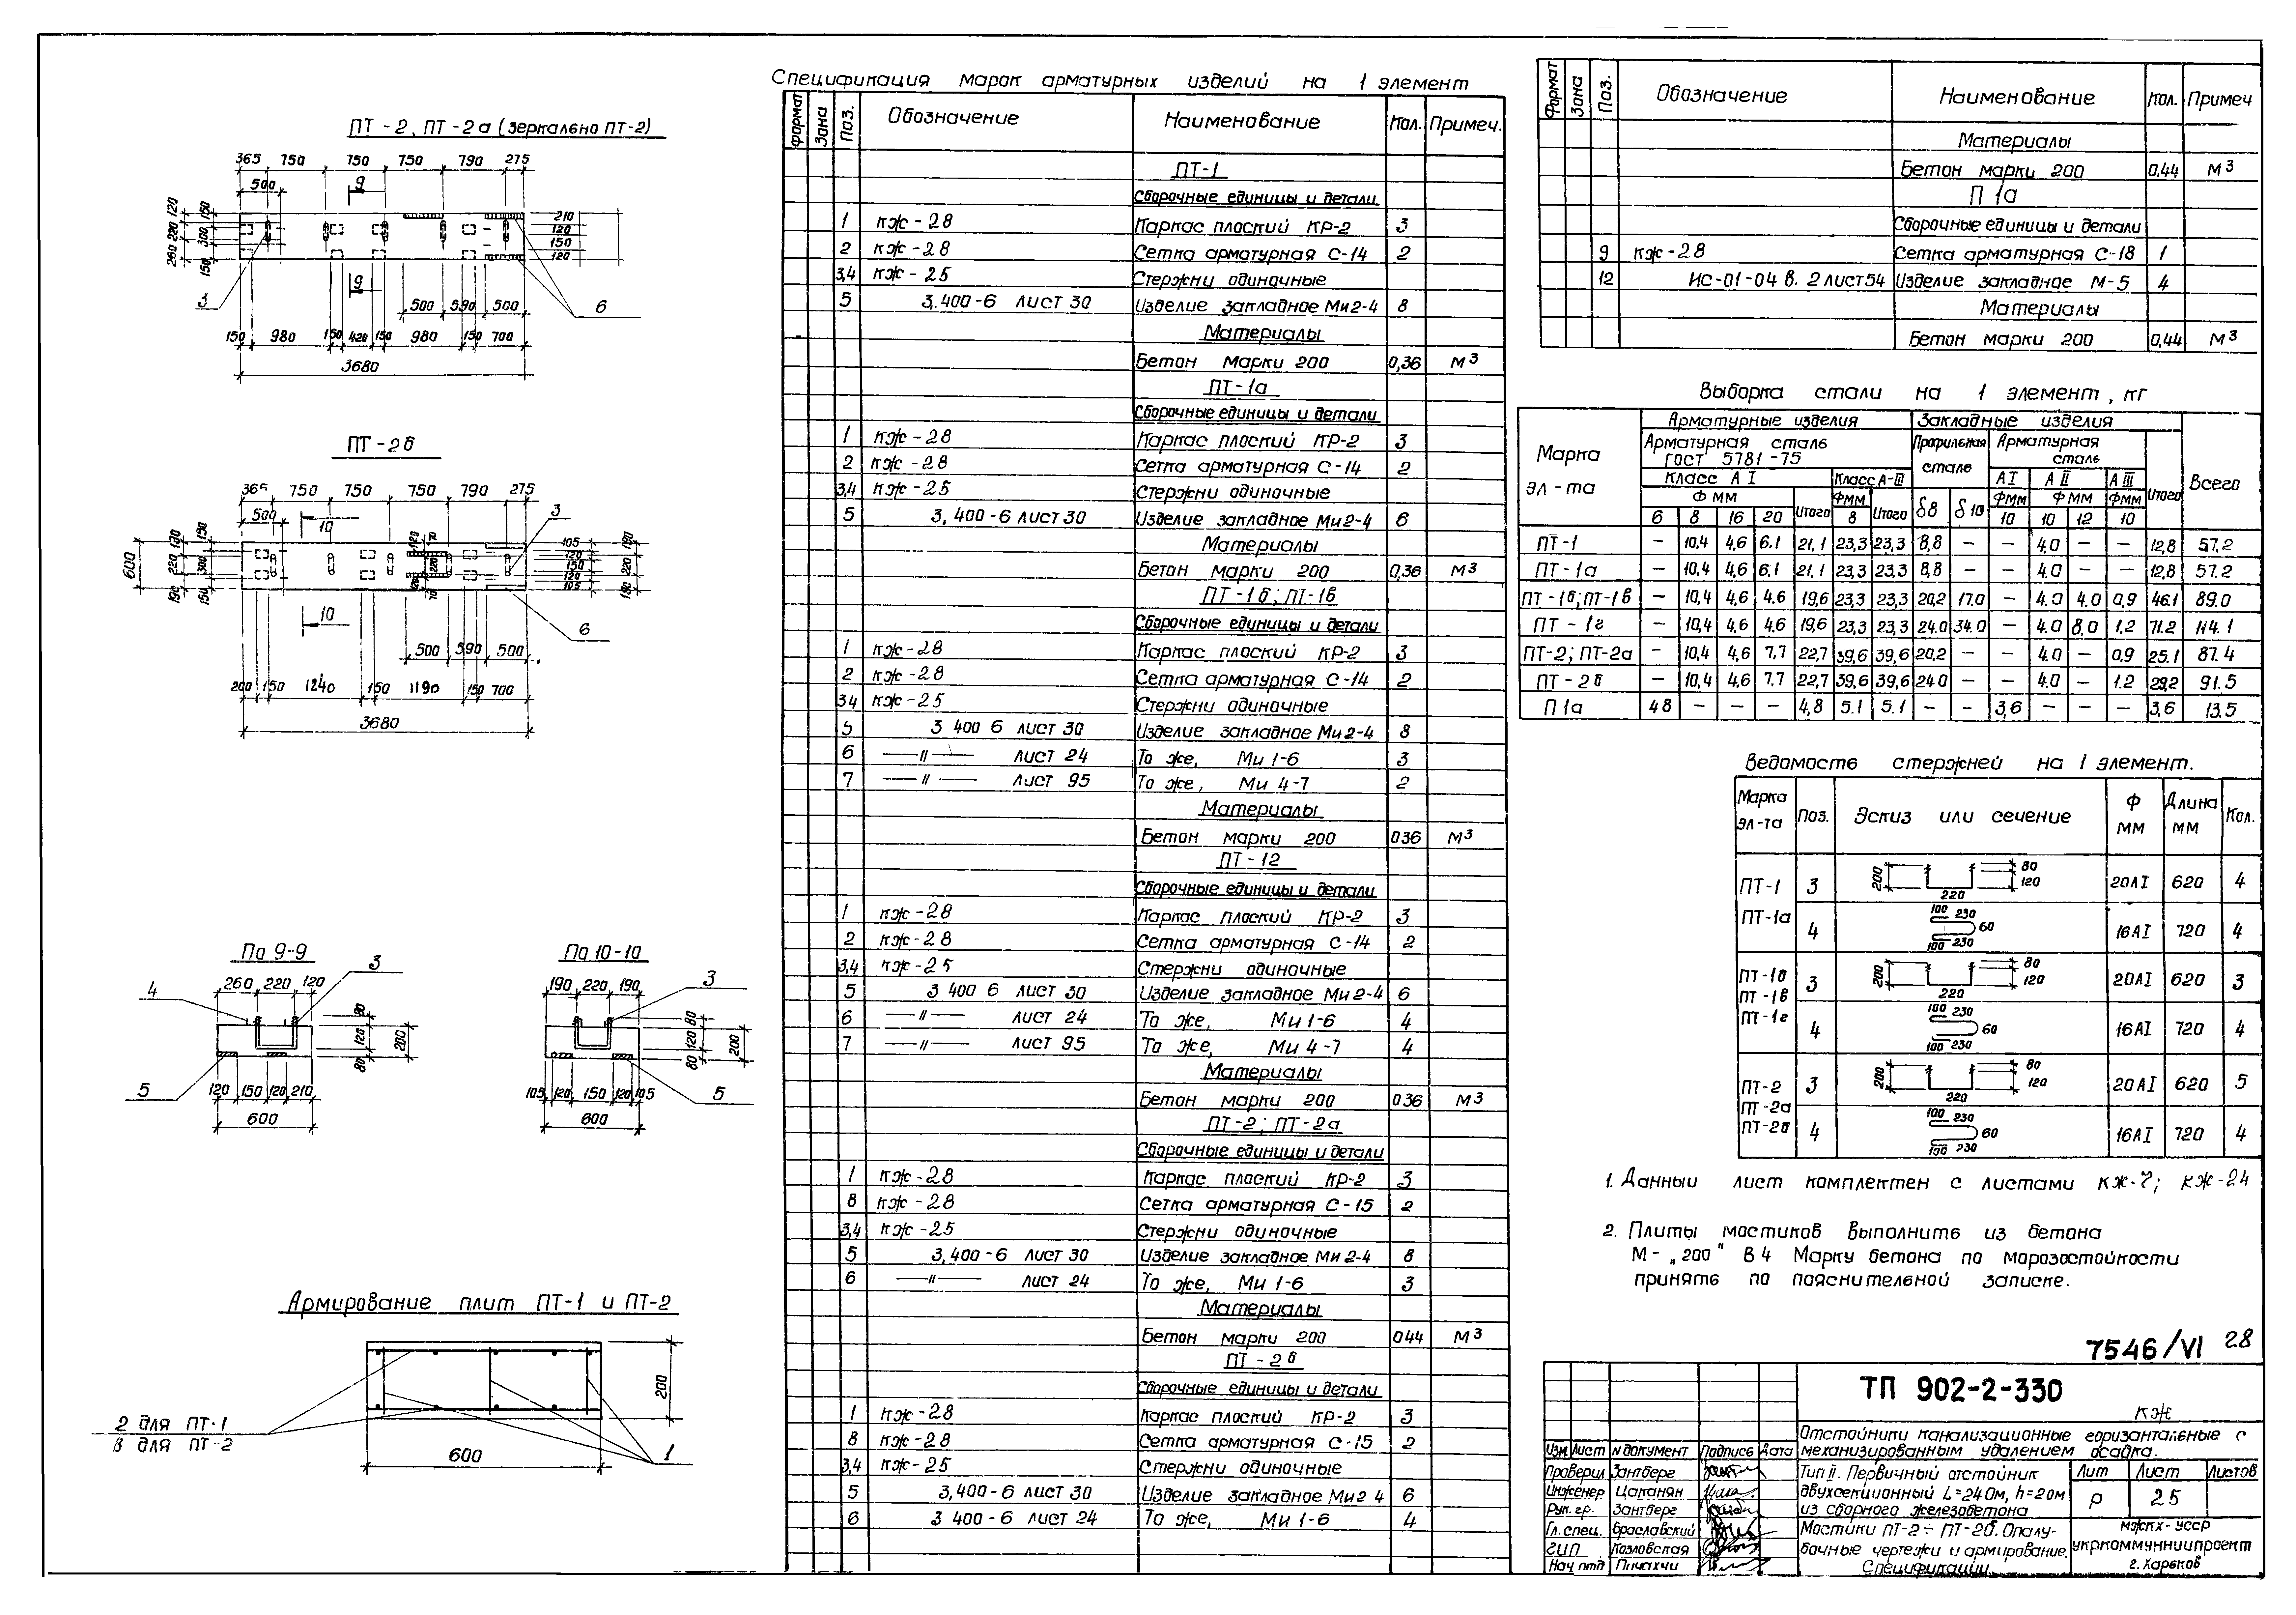 ПТ-2, ПТ-2а (зеркально ПТ-2)
365 750 750 750 790 275
500 9
120 220 260
150 300 150
210
120
150
120
3
9
6
500 590 500
150 980 150 420 150 980 150 700
3680
ПТ-2б
365 750 750 750 790 275
500 10 3
600
190 220 190
150 300 150
120 70
220
120 70
105
120
150
120
105
190 220 190
10
6
500 590 500
200 150 1240 150 1190 150 700
3680
По 9-9
3
4
260 220 120
80 120 80
200
5
120 150 120 210
600
По 10-10
3
190 220 190
80 120 80
200
5
105 120 150 120 105
600
Армирование плит ПТ-1 и ПТ-2
2 для ПТ-1
8 для ПТ-2
200
600
1
Спецификация марок арматурных изделий на 1 элемент
Формат Зона Поз. Обозначение Наименование Кол. Примеч.
ПТ-1
Сборочные единицы и детали
1 КЖ-28 Каркас плоский КР-2 3
2 КЖ-28 Сетка арматурная С-14 2
3,4 КЖ-25 Стержни одиночные
5 3.400-6 лист 30 Изделие закладное Ми2-4 8
Материалы
Бетон марки 200 0,36 м3
ПТ-1а
Сборочные единицы и детали
1 КЖ-28 Каркас плоский КР-2 3
2 КЖ-28 Сетка арматурная С-14 2
3,4 КЖ-25 Стержни одиночные
5 3,400-6 лист 30 Изделие закладное Ми2-4 6
Материалы
Бетон марки 200 0,36 м3
ПТ-1б; ПТ-1в
Сборочные единицы и детали
1 КЖ-28 Каркас плоский КР-2 3
2 КЖ-28 Сетка арматурная С-14 2
34 КЖ-25 Стержни одиночные
5 3 400 6 лист 30 Изделие закладное Ми2-4 8
6 —〃— лист 24 То же, Ми 1-6 3
7 —〃— лист 95 То же, Ми 4-7 2
Материалы
Бетон марки 200 036 м3
ПТ-12
Сборочные единицы и детали
1 КЖ-28 Каркас плоский КР-2 3
2 КЖ-28 Сетка арматурная С-14 2
3,4 КЖ-25 Стержни одиночные
5 3 400 6 лист 30 Изделие закладное Ми2-4 6
6 —〃— лист 24 То же, Ми 1-6 4
7 —〃— лист 95 То же, Ми 4-7 4
Материалы
Бетон марки 200 036 м3
ПТ-2; ПТ-2а
Сборочные единицы и детали
1 КЖ-28 Каркас плоский КР-2 3
8 КЖ-28 Сетка арматурная С-15 2
3,4 КЖ-25 Стержни одиночные
5 3,400-6 лист 30 Изделие закладное Ми2-4 8
6 —〃— лист 24 То же, Ми 1-6 3
Материалы
Бетон марки 200 044 м3
ПТ-2б
Сборочные единицы и детали
1 КЖ-28 Каркас плоский КР-2 3
8 КЖ-28 Сетка арматурная С-15 2
3,4 КЖ-25 Стержни одиночные
5 3,400-6 лист 30 Изделие закладное Ми2 4 6
6 3 400-6 лист 24 То же, Ми 1-6 4
Формат Зона Поз. Обозначение Наименование Кол. Примеч
Материалы
Бетон марки 200 0,44 м3
П 1а
Сборочные единицы и детали
9 КЖ-28 Сетка арматурная С-18 1
12 ИС-01-04 в. 2 лист 54 Изделие закладное М-5 4
Материалы
Бетон марки 200 0,44 м3
Выборка стали на 1 элемент, кг
Марка эл-та Арматурные изделия Закладные изделия Всего
Арматурная сталь ГОСТ 5781-75 Профильная сталь Арматурная сталь Итого
Класс А I Класс А-III А I А II А III
Ф мм Итого Фмм Итого δ8 δ10 Фмм Ф мм Фмм
6 8 16 20 8 10 10 12 10
ПТ-1 — 10,4 4,6 6.1 21,1 23,3 23,3 8,8 — — 4,0 — — 12,8 57.2
ПТ-1а — 10,4 4,6 6,1 21,1 23,3 23,3 8,8 — — 4.0 — — 12,8 57.2
ПТ-1б; ПТ-1в — 10,4 4,6 4.6 19,6 23,3 23,3 20,2 17.0 — 4.0 4.0 0,9 46.1 89.0
ПТ-1г — 10,4 4,6 4,6 19,6 23,3 23,3 24.0 34.0 — 4.0 8,0 1.2 71.2 114.1
ПТ-2; ПТ-2а — 10,4 4,6 7.7 22,7 39,6 39,6 20,2 — — 4.0 — 0,9 25.1 87.4
ПТ-2б — 10,4 4,6 7.7 22,7 39,6 39,6 240 — — 4.0 — 1.2 29,2 91.5
П 1а 48 — — — 4,8 5.1 5.1 — — 3,6 — — — 3,6 13.5
Ведомость стержней на 1 элемент.
Марка эл-та Поз. Эскиз или сечение Ф мм Длина мм Кол.
ПТ-1 3 200 220 80 120 20АI 620 4
ПТ-1а 4 100 230 60 100 230 16АI 720 4
ПТ-1б
ПТ-1в 3 200 220 80 120 20АI 620 3
ПТ-1г 4 100 230 60 100 230 16АI 720 4
ПТ-2 3 200 220 80 120 20АI 620 5
ПТ-2а
ПТ-2б 4 100 230 60 100 230 16АI 720 4
1. Данный лист комплектен с листами КЖ-7; КЖ-24
2. Плиты мостиков выполнить из бетона
М-„200" В4 Марку бетона по морозостойкости
принять по пояснительной записке.
7546/VI 28
ТП 902-2-330
КЖ
Отстойники канализационные горизонтальные с
механизированным удалением осадка.
Изм. Лист N документ Подпись Дата
Проверил Зонтберг
Инженер Цаканян
Рук. гр. Зонтберг
Гл. спец. Браславский
ГИП Козловская
Нач птд
Тип II. Первичный отстойник
двухсекционный L=240м, h=20м
из сборного железобетона
Лит Лист Листов
Р 25
Мостики ПТ-2 ÷ ПТ-2б. Опалу-
бочные чертежи и армирование.
Спецификации
МЖКХ-УССР
Укркоммуннипроект
г. Харьков